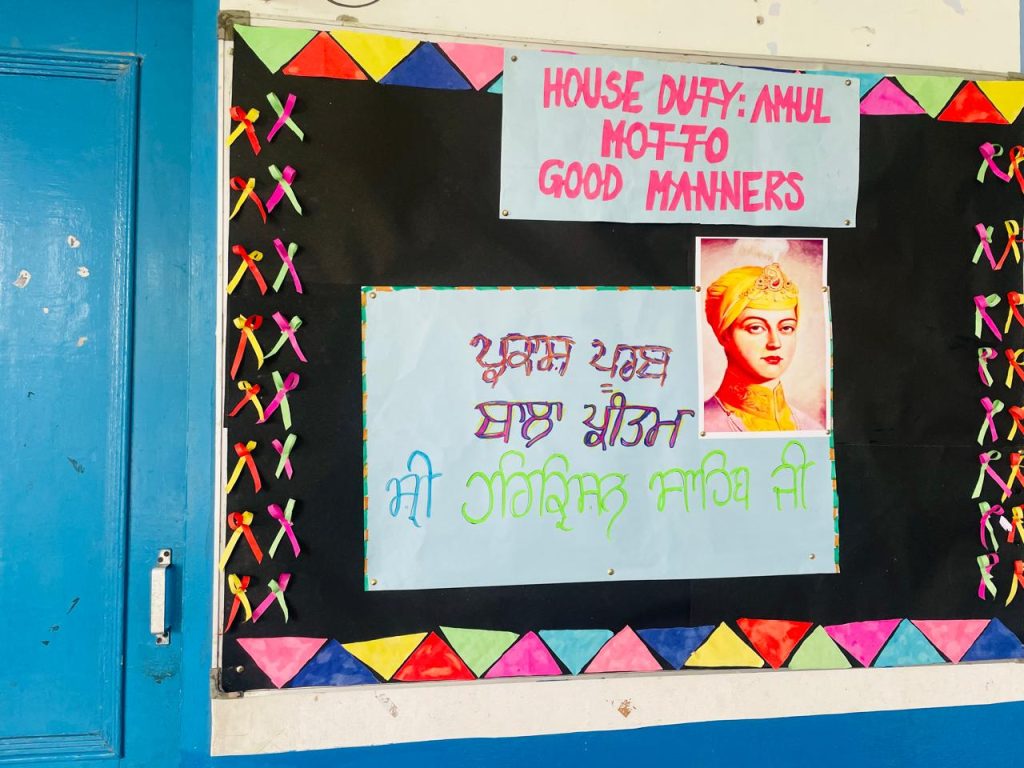 HOUSE DUTY: AMUL
MOTTO
GOOD MANNERS
ਪ੍ਰਕਾਸ਼ ਪੂਰਬ
ਬਾਲਾ ਪ੍ਰੀਤਮ
ਸ਼੍ਰੀ ਹਰਿਕ੍ਰਿਸ਼ਨ ਸਾਹਿਬ ਜੀ